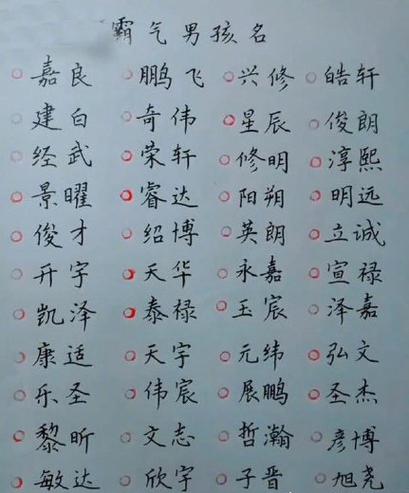 霸气男孩名
嘉良 鹏飞 兴修 皓轩
建白 奇伟 星辰 俊朗
经武 荣轩 修明 淳熙
景曜 睿达 阳朔 明远
俊才 绍博 英朗 立诚
开宇 天华 永嘉 宣禄
凯泽 泰禄 玉宸 泽嘉
康适 天宇 元纬 弘文
乐圣 伟宸 展鹏 圣杰
黎昕 文志 哲瀚 彦博
敏达 欣宇 子晋 旭尧